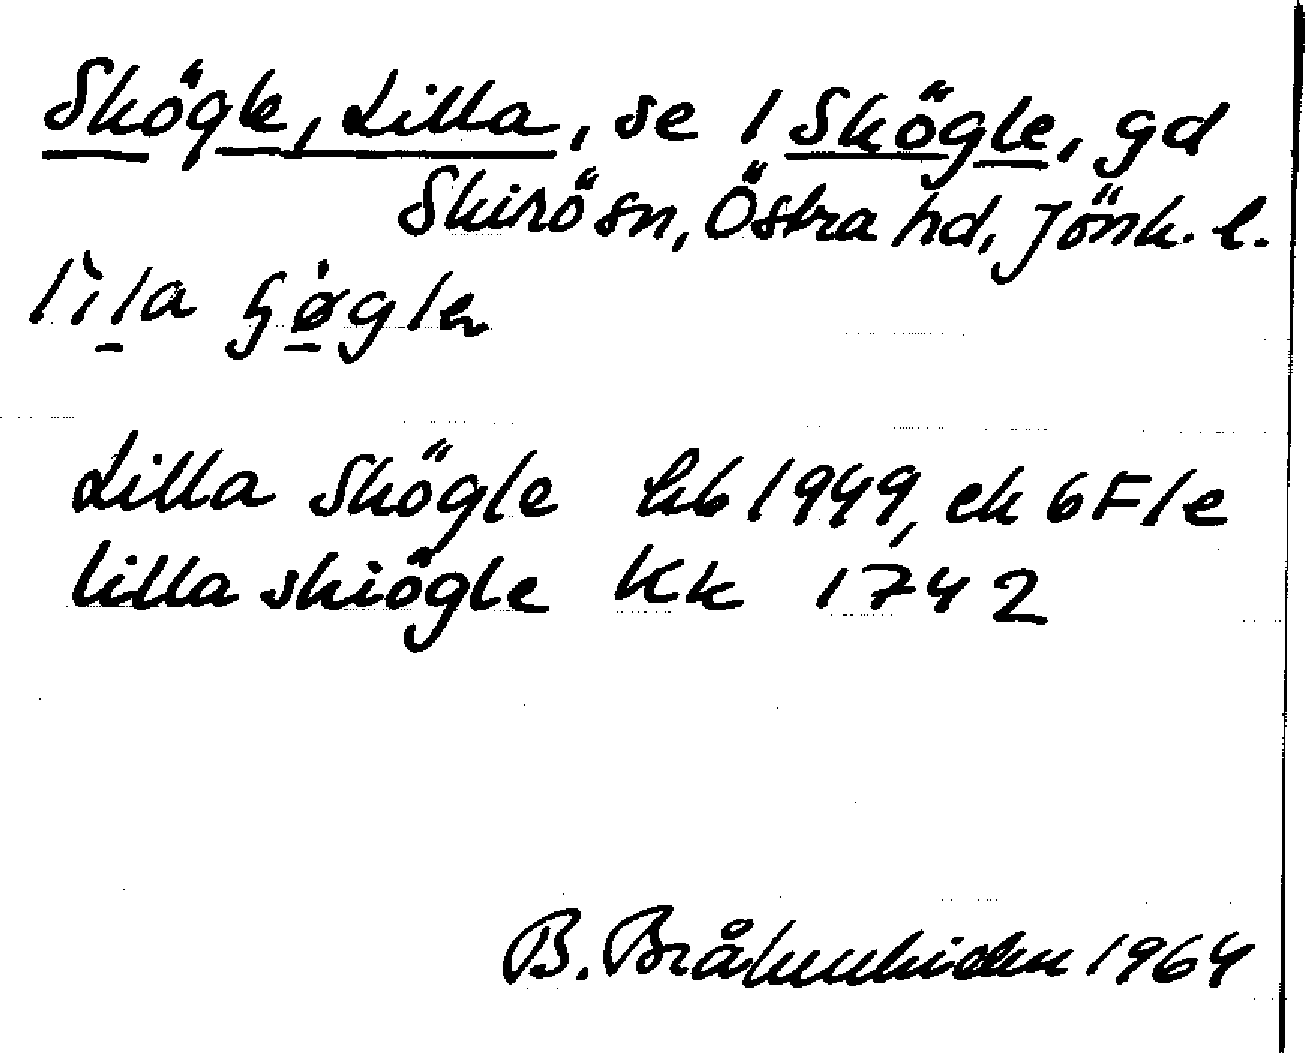 Skögle, Lilla, se 1 Skögle, gd
Skirö sn, Östra hd, Jönk. l.
lìla ɧø̀gler
Lilla Skögle hb 1949, ek 6F1e
lilla skiögle Kk 1742
B. 1964